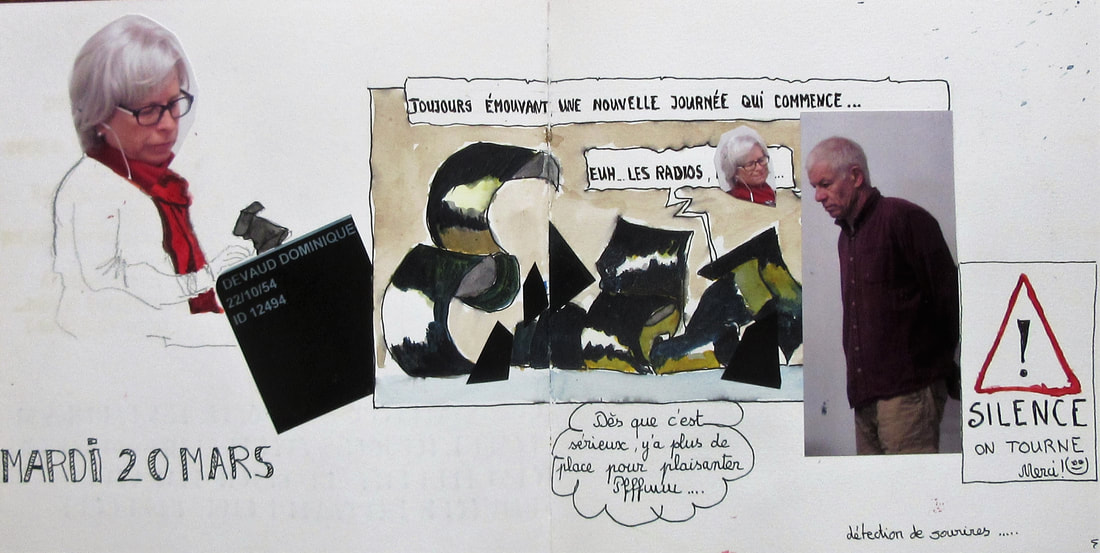 TOUJOURS ÉMOUVANT UNE NOUVELLE JOURNÉE QUI COMMENCE...
EUH... LES RADIOS, ...
DEVAUD DOMINIQUE
22/10/54
ID 12494
MARDI 20 MARS
Dès que c'est
sérieux, y'a plus de
place pour plaisanter
Pffffuuu .....
!
SILENCE
ON TOURNE
Merci!
détection de sourires .....